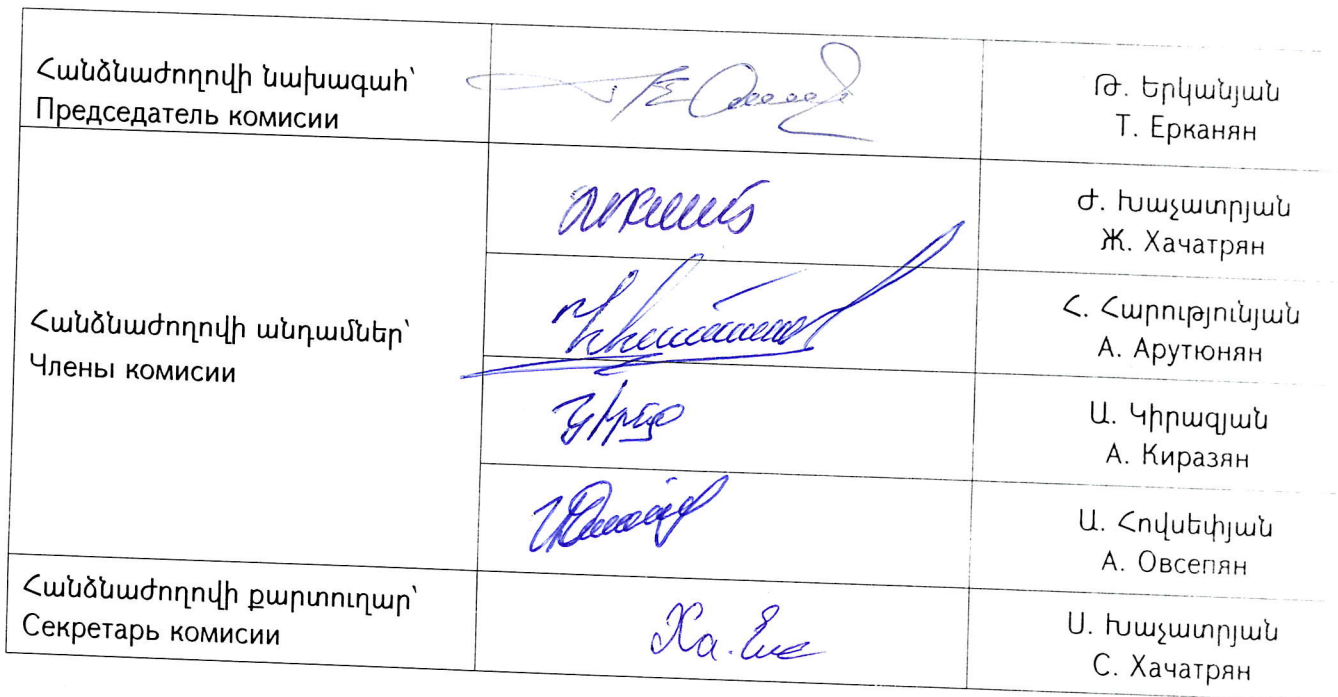 Հանձնաժողովի նախագահ՝
Председатель комисии
Թ. Երկանյան
Т. Ерканян
Ժ. Խաչատրյան
Ж. Хачатрян
Հանձնաժողովի անդամներ՝
Члены комисии
Հ. Հարությունյան
А. Арутюнян
Ա. Կիրազյան
А. Киразян
Ա. Հովսեփյան
А. Овсепян
Հանձնաժողովի քարտուղար՝
Секретарь комисии
Ս. Խաչատրյան
С. Хачатрян